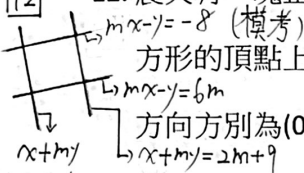 mx-y=-8 (模考)
方形的頂點上
mx-y=6m
方向方別為(0
x+my
x+my=2m+9